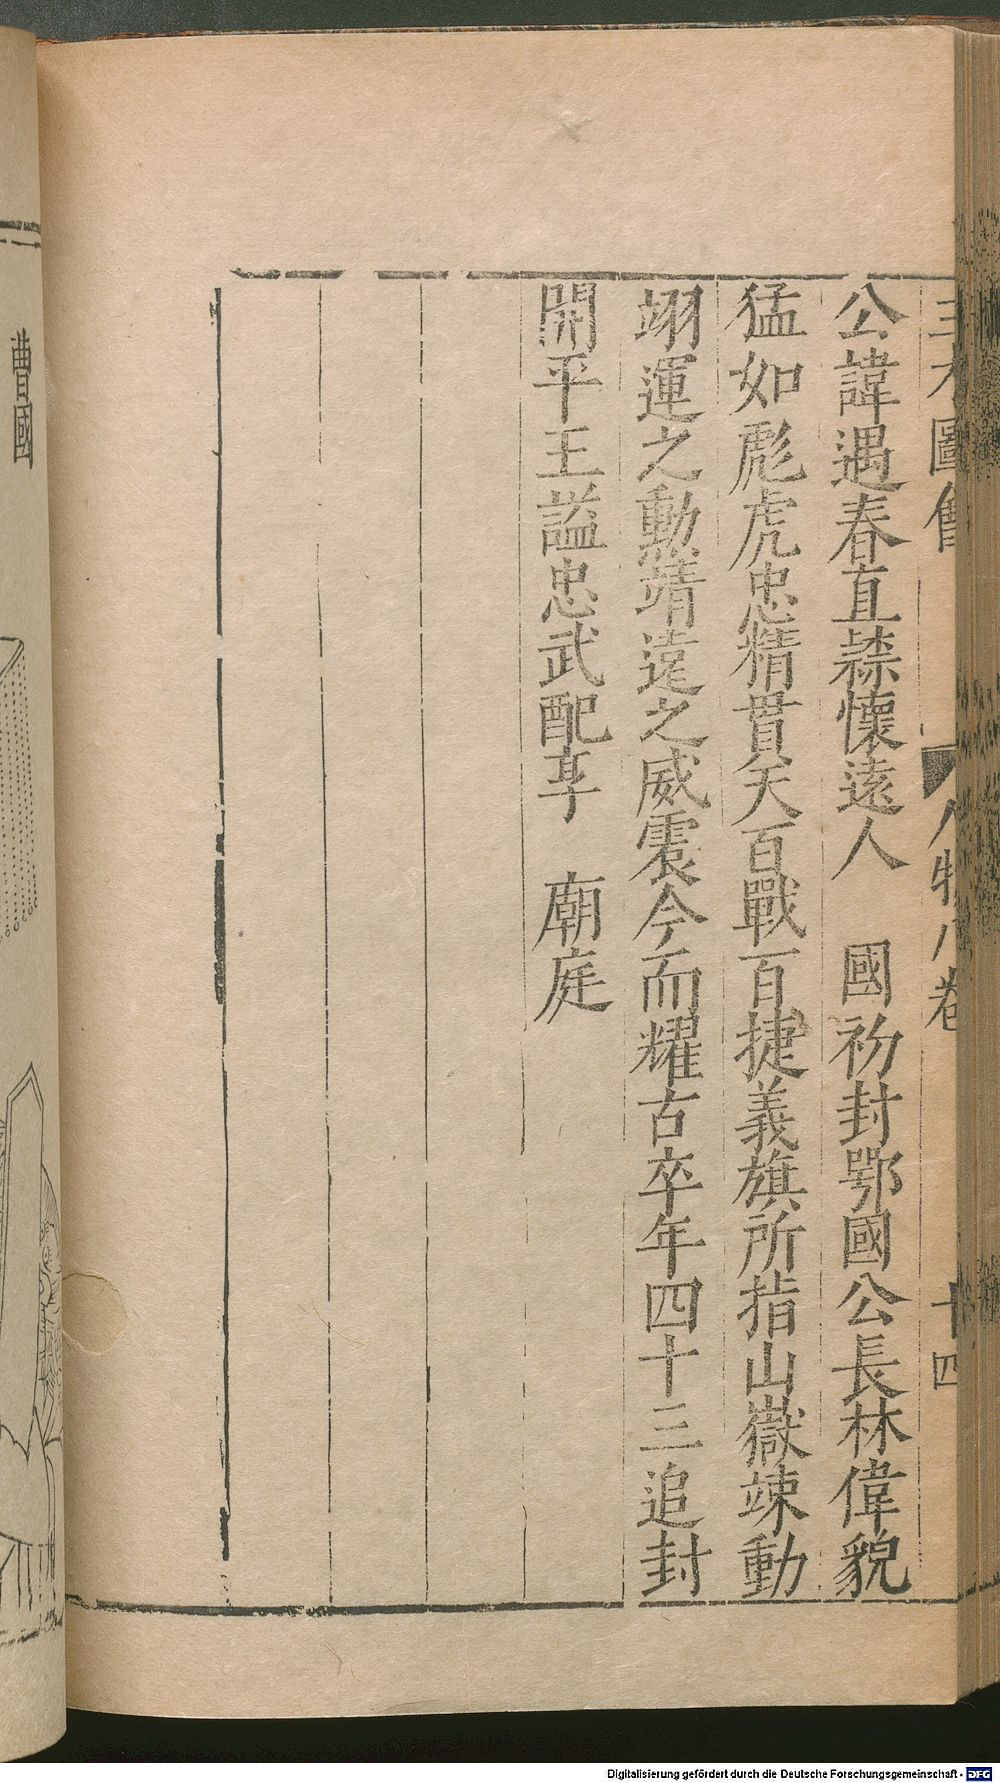 三才圖會 人物八卷 十四
公諱遇春直隸懷遠人　國初封鄂國公長林偉貌
猛如彪虎忠精貫天百戰百捷義旗所指山嶽竦動
翊運之勳靖遠之威震今而耀古卒年四十三追封
開平王謚忠武配享　廟庭
曹國
Digitalisierung gefördert durch die Deutsche Forschungsgemeinschaft - DFG